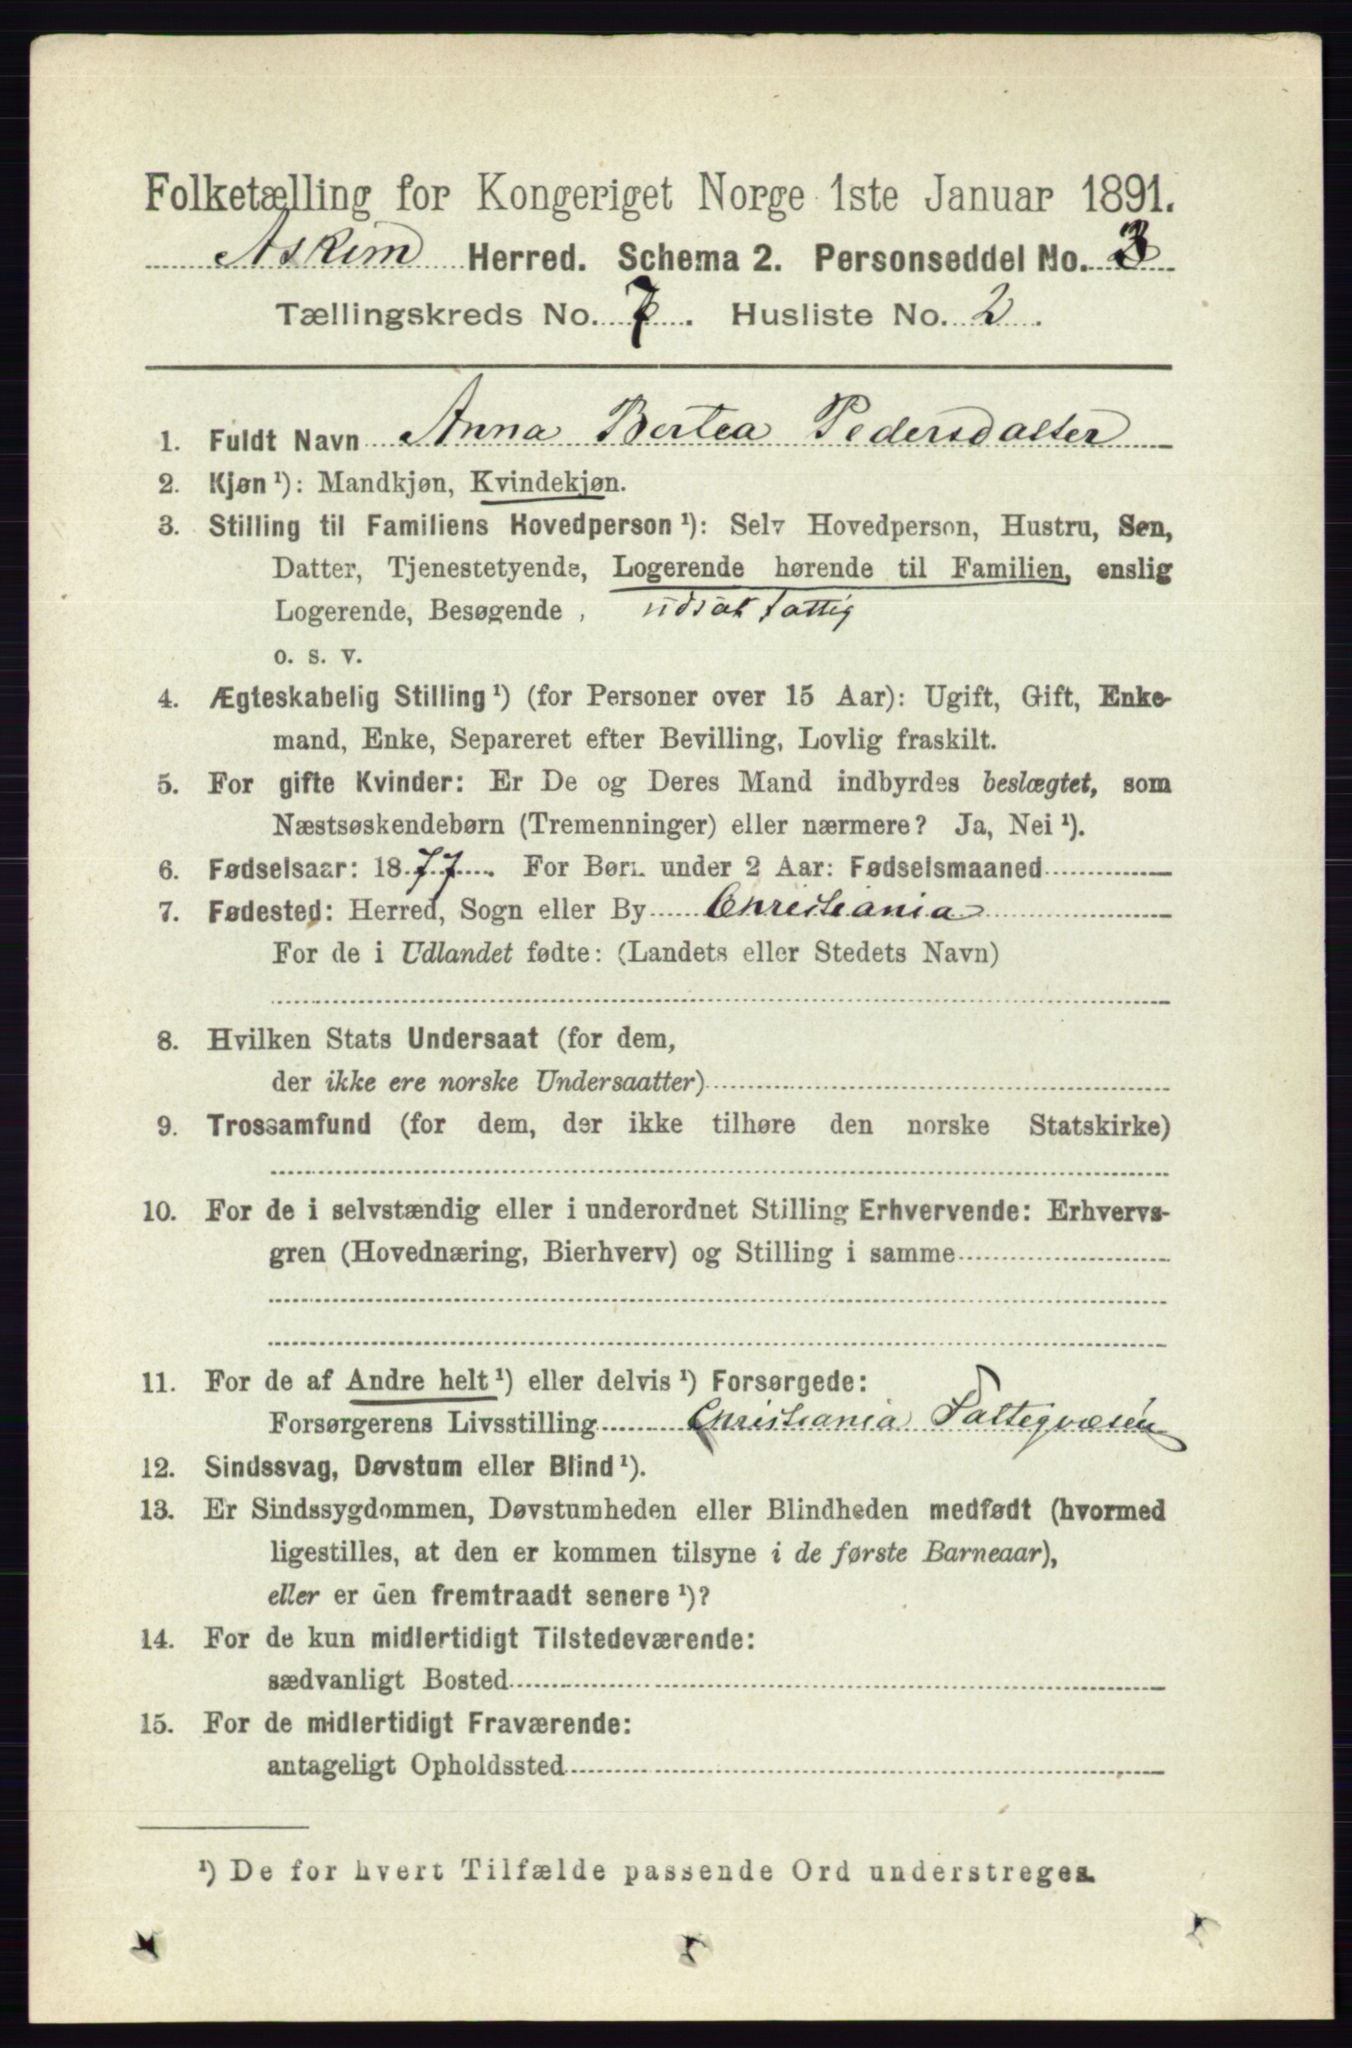 Folketælling for Kongeriget Norge 1ste Januar 1891.
Askim Herred. Schema 2. Personseddel No. 3
Tællingskreds No. 7. Husliste No. 2.
1. Fuldt Navn Anna Bertea Pedersdatter
2. Kjøn ¹): Mandkjøn, Kvindekjøn.
3. Stilling til Familiens Hovedperson ¹): Selv Hovedperson, Hustru, Søn,
Datter, Tjenestetyende, Logerende hørende til Familien, enslig
Logerende, Besøgende , udsat fattig
o. s. v.
4. Ægteskabelig Stilling ¹) (for Personer over 15 Aar): Ugift, Gift, Enke-
mand, Enke, Separeret efter Bevilling, Lovlig fraskilt.
5. For gifte Kvinder: Er De og Deres Mand indbyrdes beslægtet, som
Næstsøskendebørn (Tremenninger) eller nærmere? Ja, Nei ¹).
6. Fødselsaar: 1877. For Børn under 2 Aar: Fødselsmaaned
7. Fødested: Herred, Sogn eller By Christiania
For de i Udlandet fødte: (Landets eller Stedets Navn)
8. Hvilken Stats Undersaat (for dem,
der ikke ere norske Undersaatter)
9. Trossamfund (for dem, der ikke tilhøre den norske Statskirke)
10. For de i selvstændig eller i underordnet Stilling Erhvervende: Erhvervs-
gren (Hovednæring, Bierhverv) og Stilling i samme
11. For de af Andre helt ¹) eller delvis ¹) Forsørgede:
Forsørgerens Livsstilling Christiania Fattigvæsen
12. Sindssvag, Døvstum eller Blind ¹).
13. Er Sindssygdommen, Døvstumheden eller Blindheden medfødt (hvormed
ligestilles, at den er kommen tilsyne i de første Barneaar),
eller er den fremtraadt senere ¹)?
14. For de kun midlertidigt Tilstedeværende:
sædvanligt Bosted
15. For de midlertidigt Fraværende:
antageligt Opholdssted
¹) De for hvert Tilfælde passende Ord understreges.